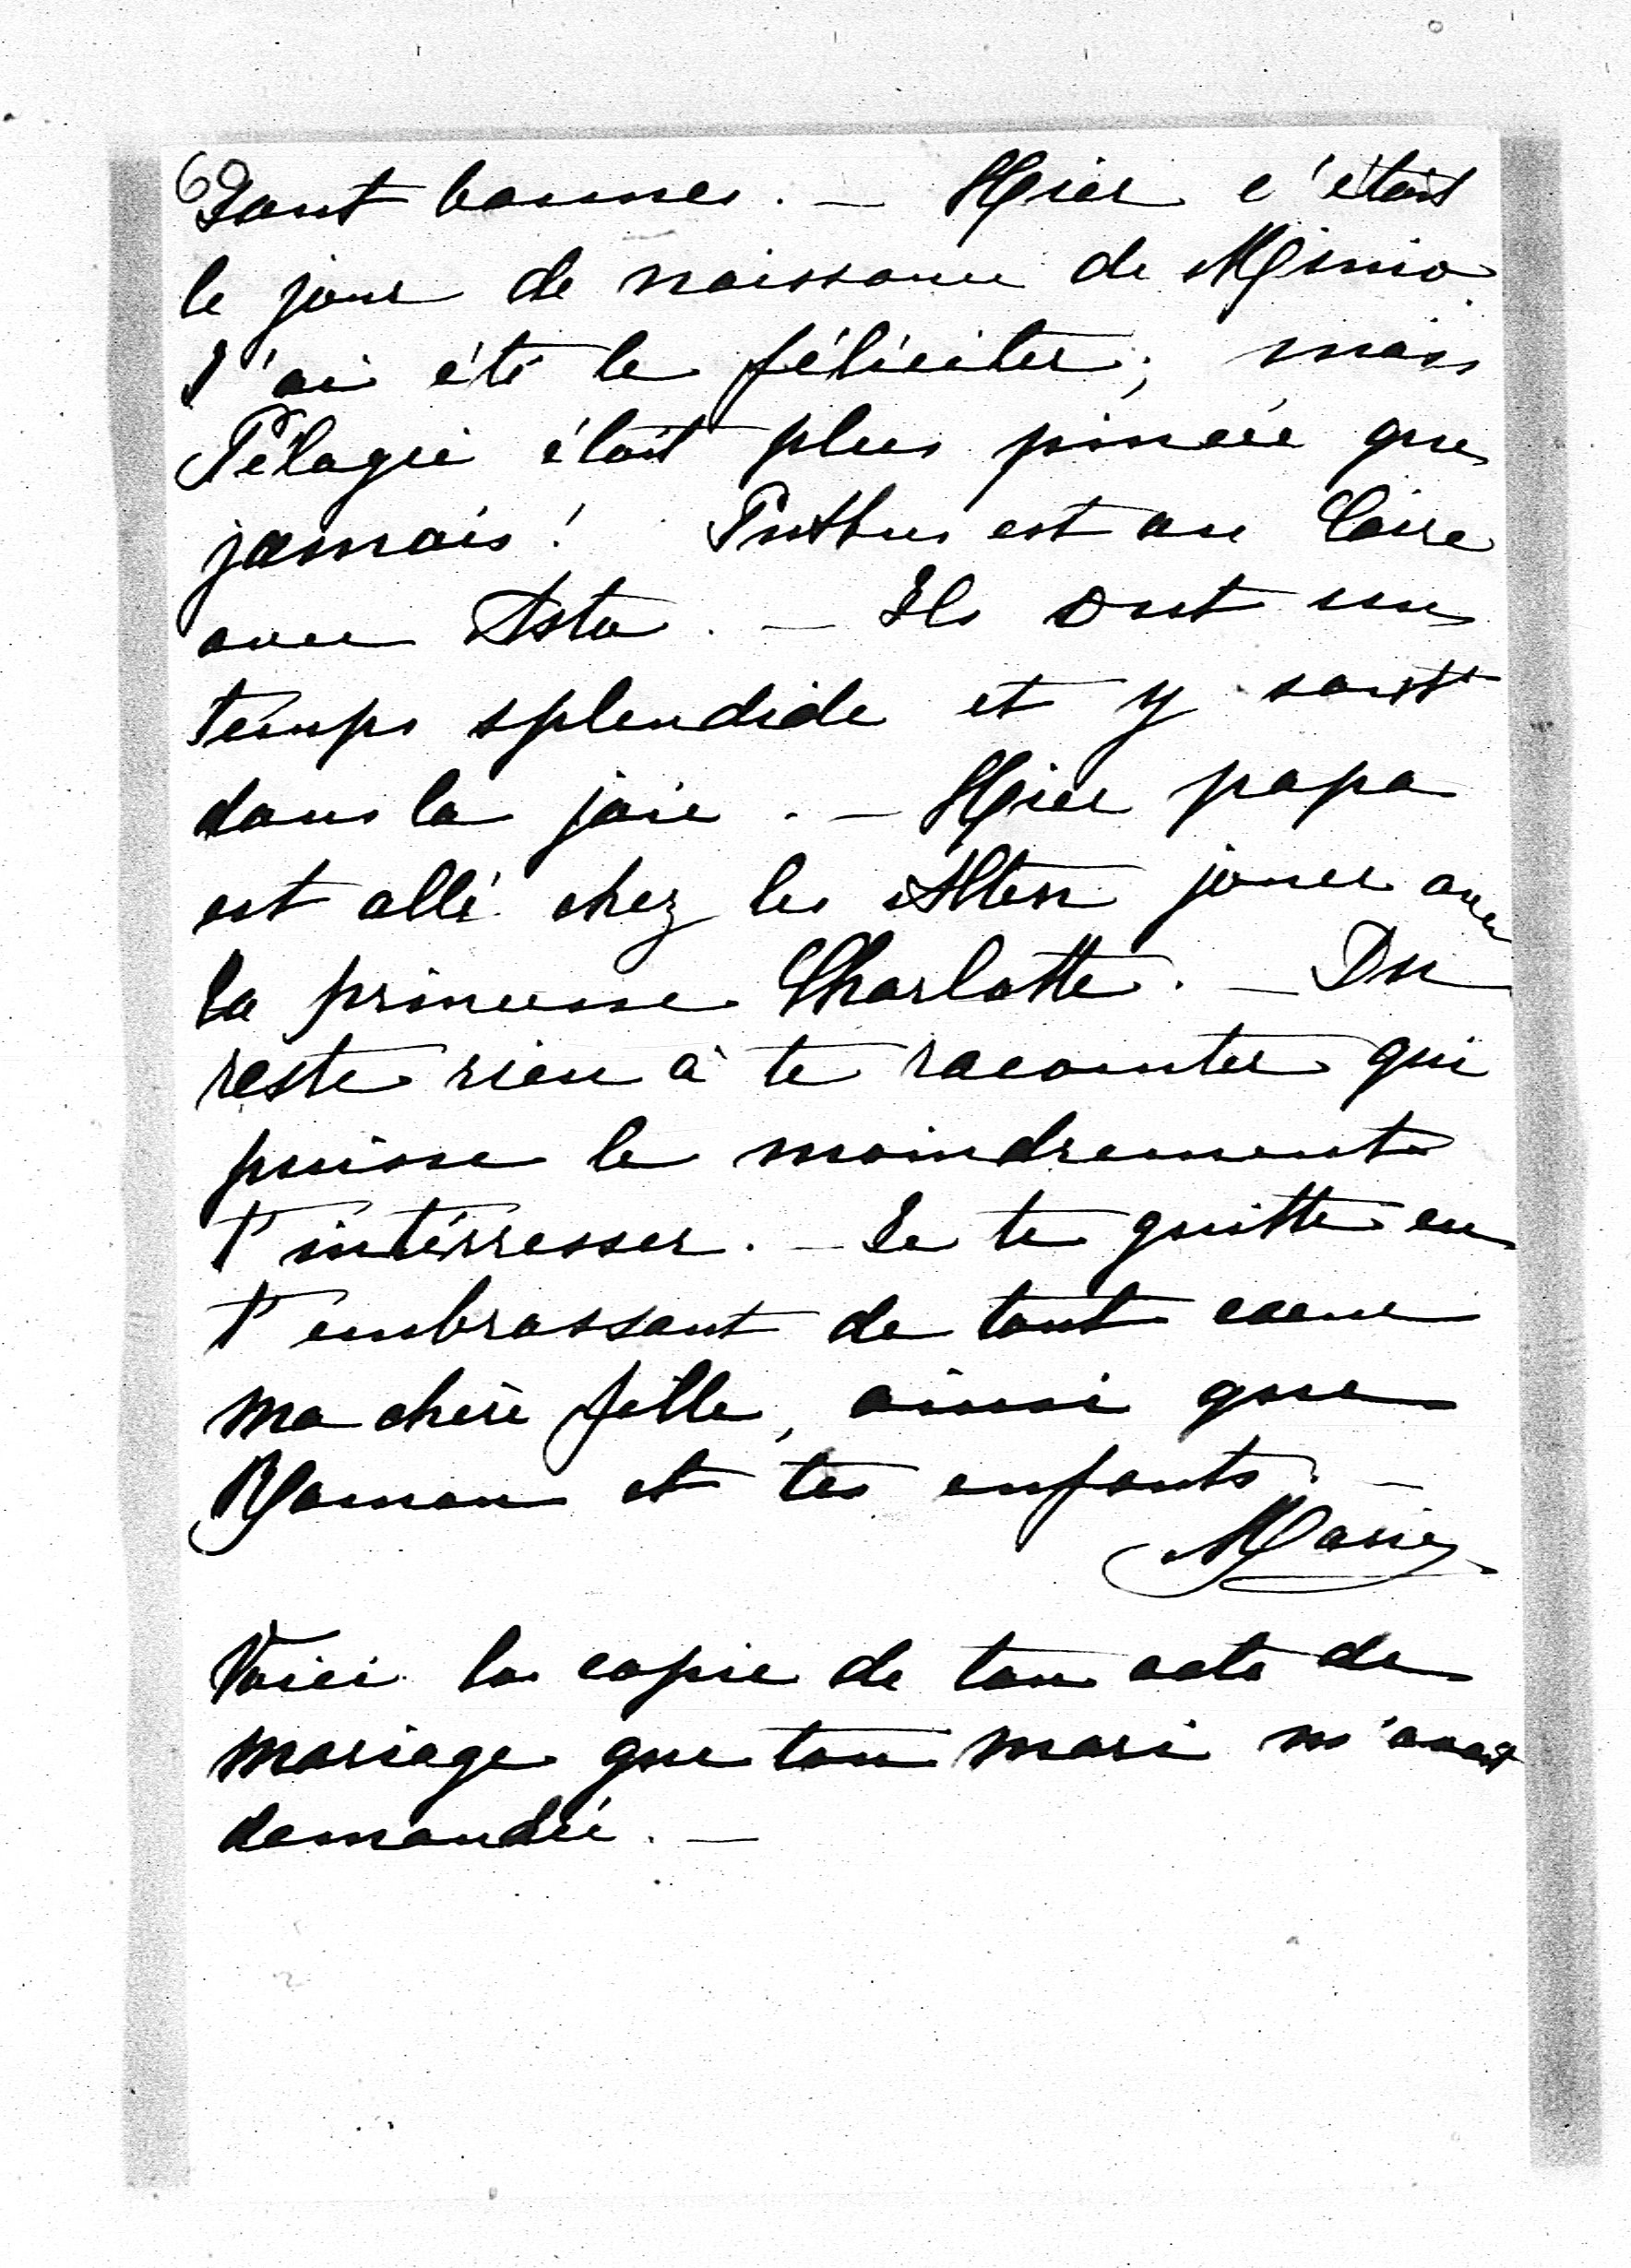 6
Sont bonnes. — Hier c'était
le jour de naissance de Mimio
J'ai été le féliciter; mais
Pélagie était plus pincée que
jamais! Putbus est au Caire
avec Asta. — Ils ont un
temps splendide et y sont
dans la joie. — Hier papa
est allé chez les Alten jouer avec
la princesse Charlotte. — Du
reste rien à te raconter qui
puisse le moindrement
t'intérresser. — Je te quitte en
t'embrassant de tout coeur
ma chère fille, ainsi que
Roman et tes enfants. —
Marie
Voici la copie de ton acte de
mariage que ton mari m'avait
demandée. —